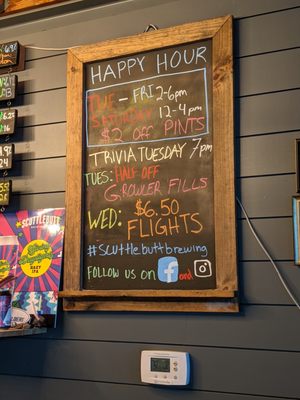 HAPPY HOUR
TUE - FRI 2-6pm
SATURDAY 12-4pm
$2 OFF PINTS
TRIVIA TUESDAY 7pm
TUES: HALF OFF
GROWLER FILLS
WED: $6.50
FLIGHTS
#scuttlebuttbrewing
FOLLOW US ON f and
SCUTTLEBUTT
HAZY IPA